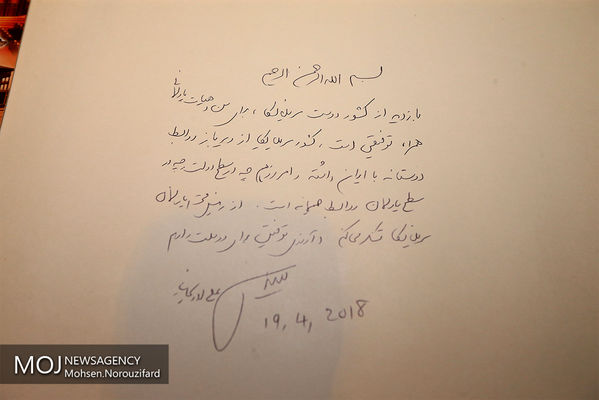 بسم الله الرحمن الرحیم
بازدید از کشور دوست سریلانکا، برای من و هیات پارلمانی
همراه توفیقی است. کشور سریلانکا از دیرباز روابط
دوستانه با ایران داشته و امروز هم چه در سطح دولت چه در
سطح پارلمان روابط صمیمانه است. از رئیس محترم پارلمان
سریلانکا تشکر می‌کنم و آرزوی توفیق برای دو ملت دارم
علی لاریجانی
19, 4, 2018
MOJ NEWSAGENCY
Mohsen.Norouzifard